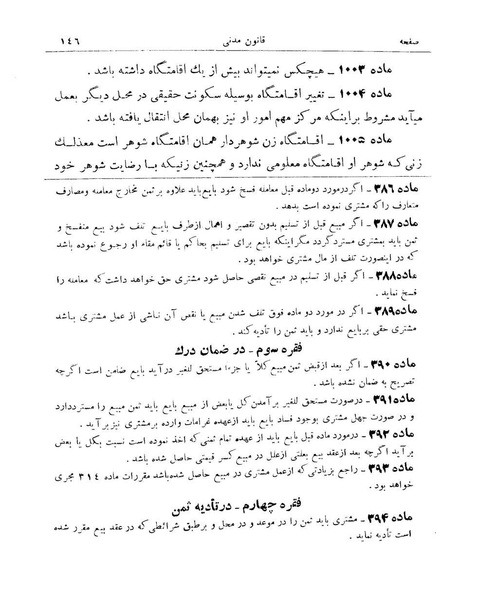 صفحه قانون مدنی ۱۴۶
ماده ۱۰۰۳ ـ هیچکس نمیتواند بیش از یك اقامتگاه داشته باشد .
ماده ۱۰۰۴ ـ تغییر اقامتگاه بوسیله سکونت حقیقی در محل دیگر بعمل
میآید مشروط براینکه مرکز مهم امور او نیز بهمان محل انتقال یافته باشد .
ماده ۱۰۰۵ ـ اقامتگاه زن شوهردار همان اقامتگاه شوهر است معذلك
زنی که شوهر او اقامتگاه معلومی ندارد و همچنین زنیکه با رضایت شوهر خود
ماده ۳۸۶ ـ اگر در مورد دو ماده قبل معامله فسخ شود بایع باید علاوه بر ثمن مخارج معامله ومصارف
متعارف را که مشتری نموده است بدهد .
ماده ۳۸۷ ـ اگر مبیع قبل از تسلیم بدون تقصیر و اهمال از طرف بایع تلف شود بیع منفسخ و
ثمن باید بمشتری مسترد گردد مگر اینکه بایع برای تسلیم بحاکم یا قائم مقام او رجوع نموده باشد
که در اینصورت تلف از مال مشتری خواهد بود .
ماده ۳۸۸ ـ اگر قبل از تسلیم در مبیع نقصی حاصل شود مشتری حق خواهد داشت که معامله را
فسخ نماید .
ماده ۳۸۹ ـ اگر در مورد دو ماده فوق تلف شدن مبیع یا نقص آن ناشی از عمل مشتری باشد
مشتری حقی بر بایع ندارد و باید ثمن را تأدیه کند .
فقره سوم ـ در ضمان درك
ماده ۳۹۰ ـ اگر بعد از قبض ثمن مبیع کلاً یا جزءا مستحق للغیر درآید بایع ضامن است اگرچه
تصریح به ضمان نشده باشد .
ماده ۳۹۱ ـ در صورت مستحق للغیر برآمدن کل یا بعض از مبیع بایع باید ثمن مبیع را مسترددارد
و در صورت جهل مشتری بوجود فساد بایع باید ازعهده غرامات وارده بر مشتری نیز برآید .
ماده ۳۹۲ ـ در مورد ماده قبل بایع باید از عهده تمام ثمنی که اخذ نموده است نسبت بکل یا بعض
برآید اگرچه بعد از عقد بیع بعلتی از علل در مبیع کسر قیمتی حاصل شده باشد .
ماده ۳۹۳ ـ راجع بزیادتی که از عمل مشتری در مبیع حاصل شده باشد مقررات ماده ۳۱۴ مجری
خواهد بود .
فقره چهارم ـ در تأدیه ثمن
ماده ۳۹۴ ـ مشتری باید ثمن را در موعد و در محل و بر طبق شرائطی که در عقد بیع مقرر شده
است تأدیه نماید .